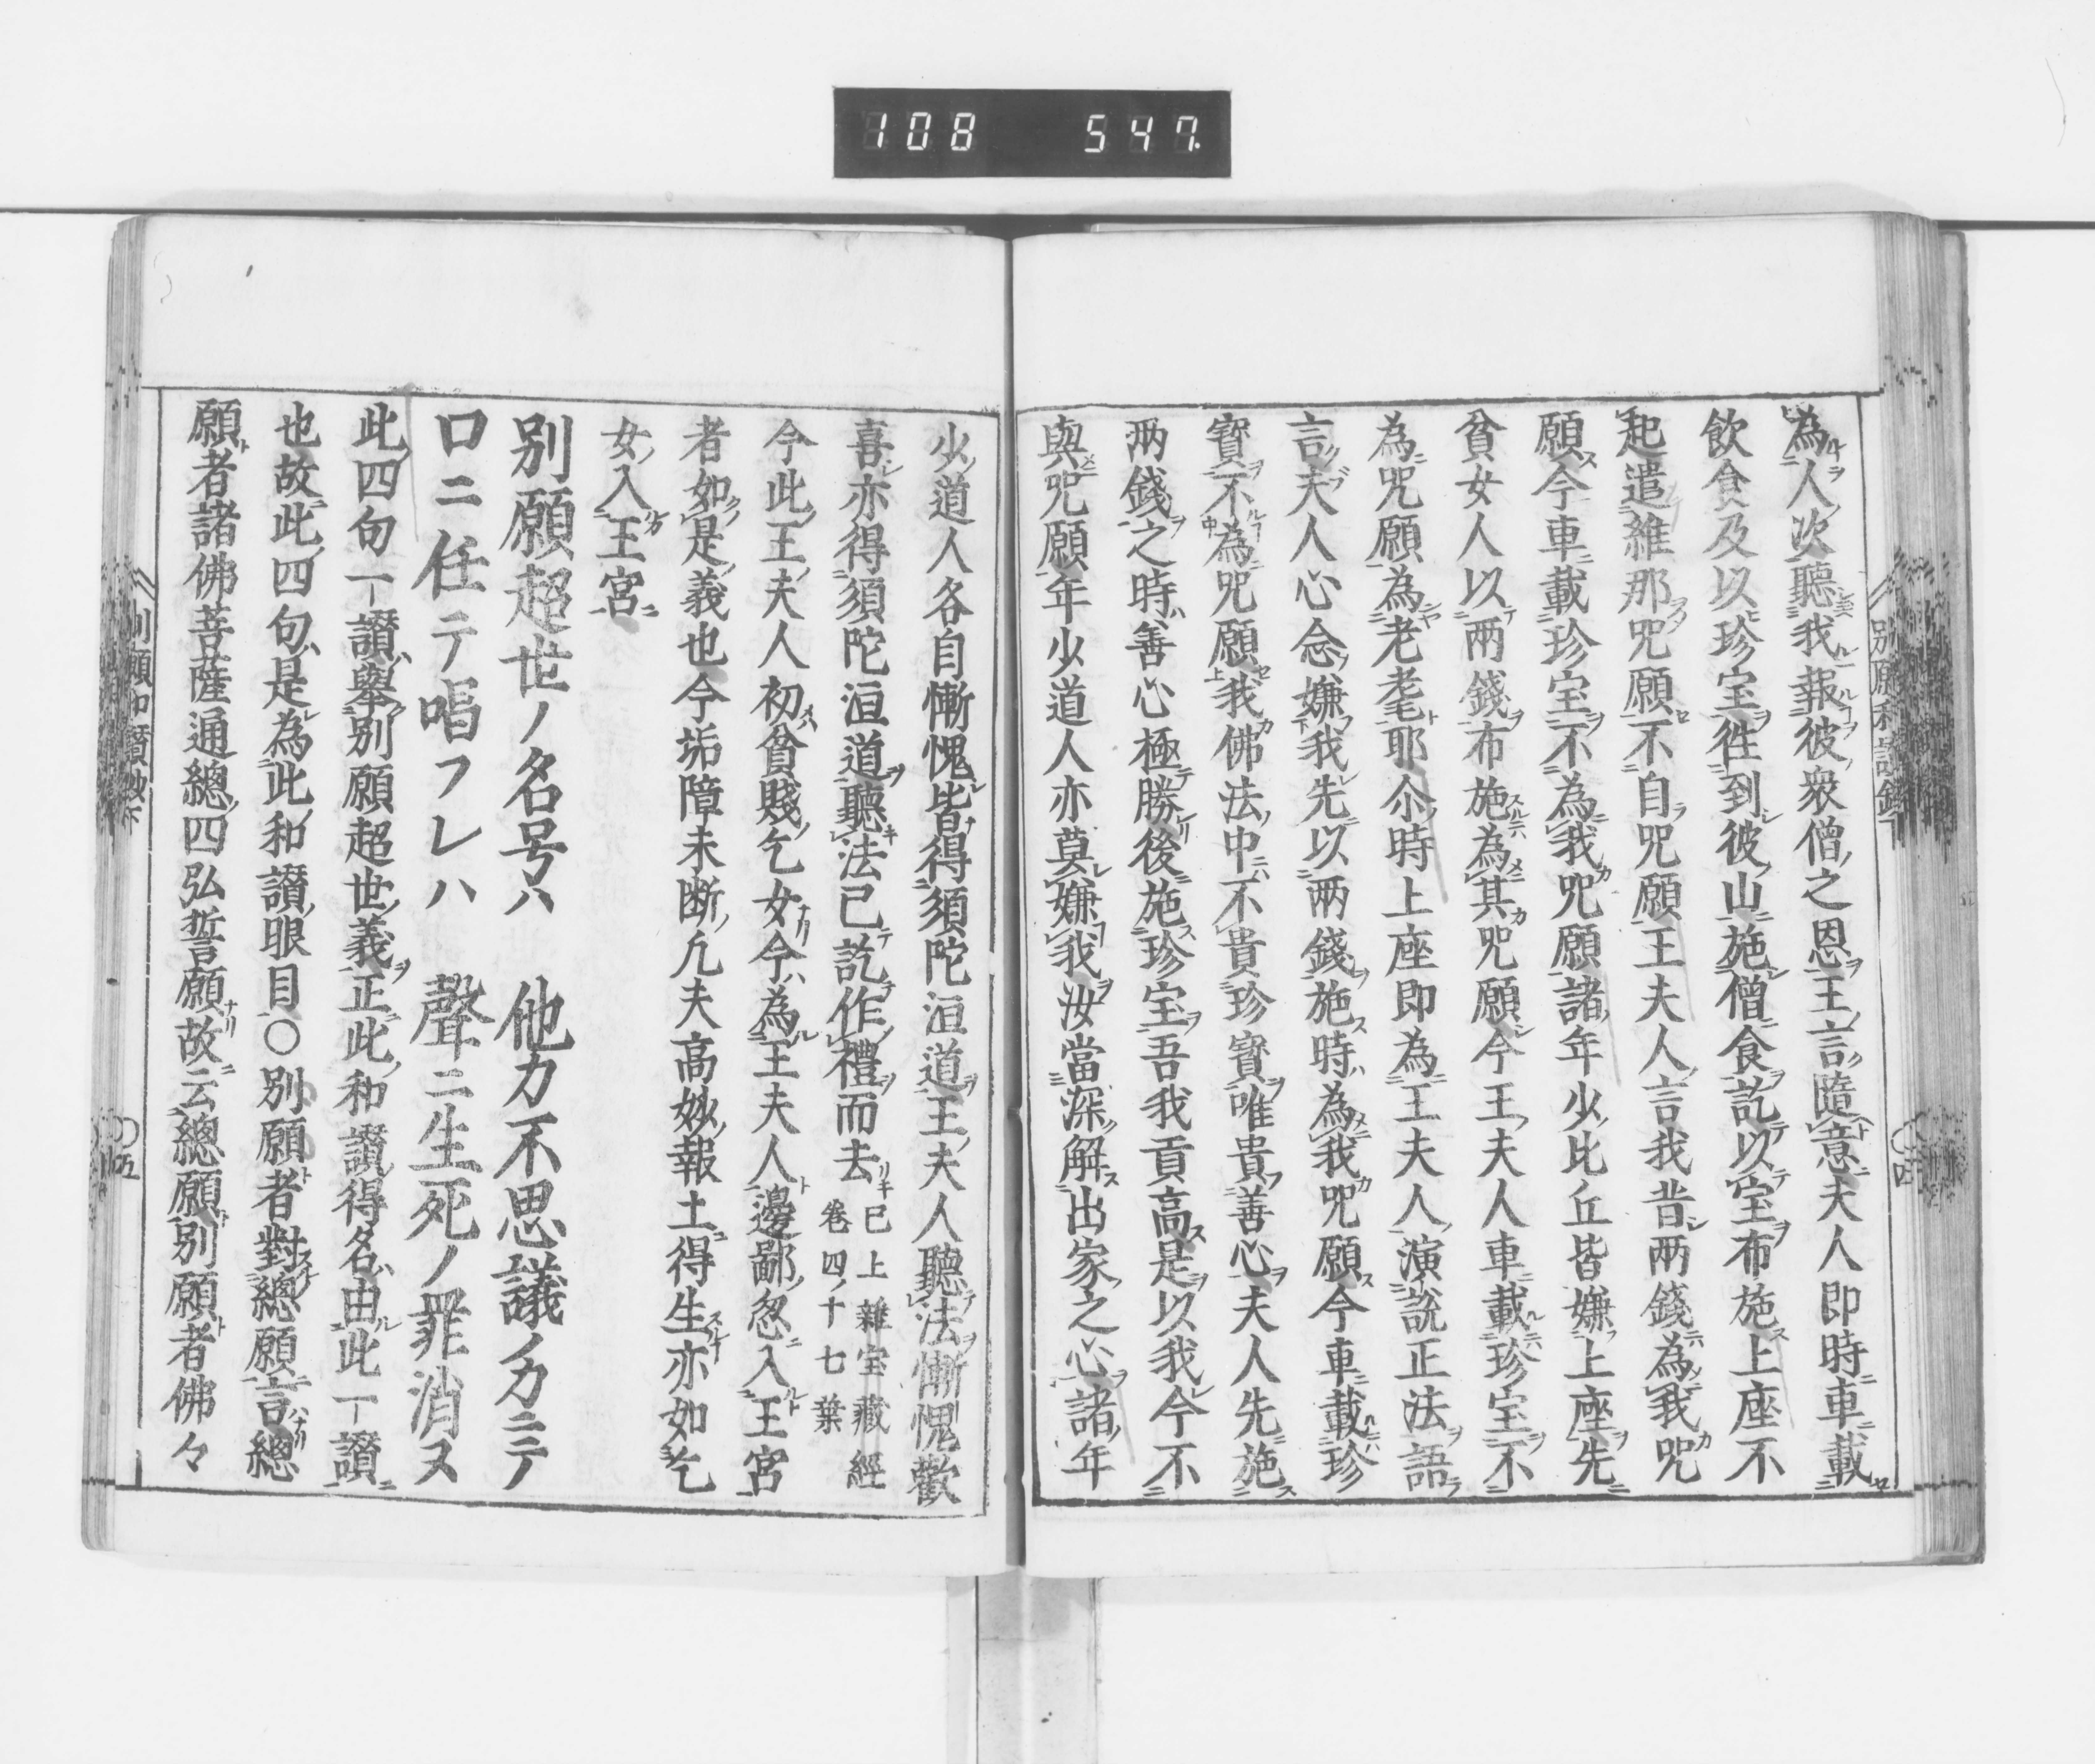 108 547.
為人次聽我報彼衆僧之恩王言隨意夫人即時車載
飲食及以珍宝徃到彼山施僧食訖以宝布施上座不
起遣維那呪願不自呪願王夫人言我昔兩錢為我呪
願今車載珍宝不為我呪願諸年少比丘皆嫌上座先
貧女人以兩錢布施為其呪願今王夫人車載珍宝不
為呪願為老耄耶尒時上座即為王夫人演説正法語
言夫人心念嫌我先以兩錢施時為我呪願今車載珍
寳不為呪願我佛法中不貴珍寳唯貴善心夫人先施
兩錢之時善心極勝後施珍宝吾我貢高是以我今不
與呪願年少道人亦莫嫌我汝當深解出家之心諸年
別願和讃鈔下
〇四
少道人各自慚愧皆得須陀洹道王夫人聽法慚愧歡
喜亦得須陀洹道聽法已訖作禮而去已上雜宝藏經卷四ノ十七葉
今此王夫人初貧賤乞女今為王夫人邊鄙忽入王宮
者如是義也今垢障未断凢夫高妙報土得生亦如乞
女入王宮
別願超世ノ名号ハ　他力不思議ノ力ニテ
口ニ任テ唱フレハ　聲ニ生死ノ罪消ヌ
此四句一讃舉別願超世義正此和讃得名由此一讃
也故此四句是為此和讃眼目〇別願者對總願言總
願者諸佛菩薩通總四弘誓願故云總願別願者佛々
別願和讃鈔下
〇五